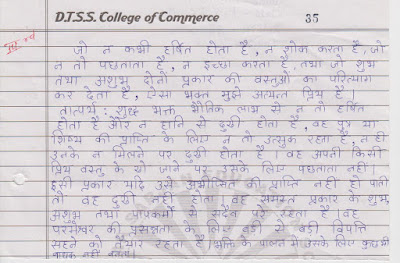 D.T.S.S. College of Commerce
35
जो न कभी हर्षित होता है, न शोक करता है, जो
न तो पछताता है, न इच्छा करता है, तथा जो शुभ
तथा अशुभ दोनों प्रकार की वस्तुओं का परित्याग
कर देता है, ऐसा भक्त मुझे अत्यन्त प्रिय है।
तात्पर्य: शुद्ध भक्त भौतिक लाभ से न तो हर्षित
होता है और न हानि से दुखी होता है, वह पुत्र या
शिष्य की प्राप्ति के लिए न तो उत्सुक रहता है, न ही
उनके न मिलने पर दुखी होता है। वह अपनी किसी
प्रिय वस्तु के खो जाने पर उसके लिए पछताता नहीं।
इसी प्रकार यदि उसे अभीप्सित की प्राप्ति नहीं हो पाती
तो वह दुखी नहीं होता। वह समस्त प्रकार के शुभ,
अशुभ तथा पापकर्मों से सदैव परे रहता है। वह
परमेश्वर की प्रसन्नता के लिए बड़ी से बड़ी विपत्ति
सहने को तैयार रहता है। भक्ति के पालन में उसके लिए कुछ भी
बाधक नहीं बनता।